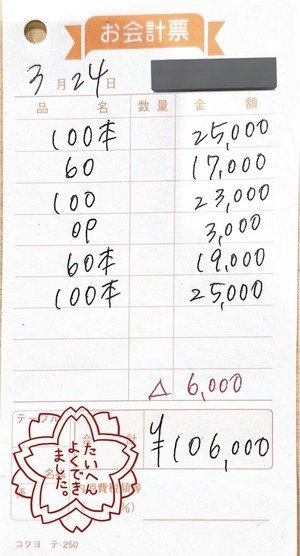 お会計票
3月24日
品名 数量 金額
100本 25,000
60 17,000
100 23,000
OP 3,000
60本 19,000
100本 25,000
△ 6,000
テーブル
合計 ¥106,000
たいへん
よくでき
ました。
内消費税額等
%)
コクヨ テ-250